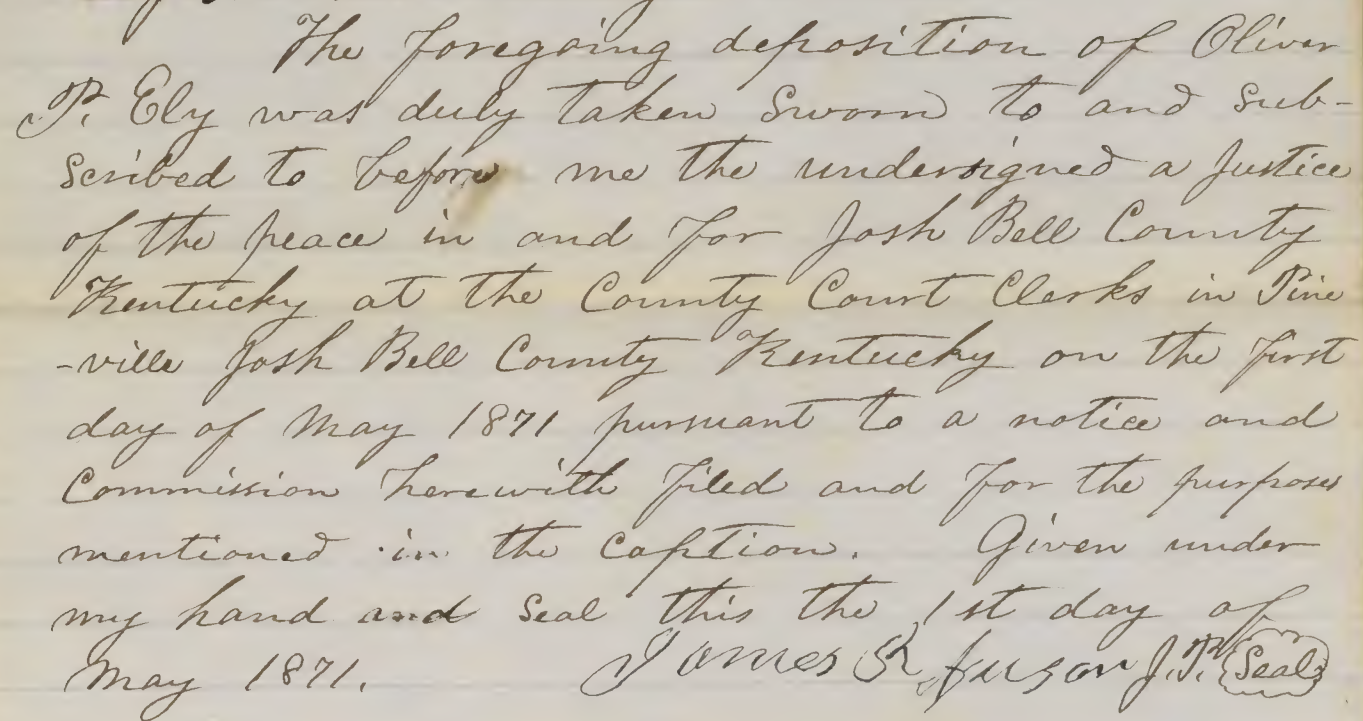 The foregoing deposition of Oliver
P. Ely was duly taken Sworn to and sub-
scribed to before me the undersigned a Justice
of the peace in and for Josh Bell County
Kentucky at the County Court Clerks in Pine
-ville Josh Bell County Kentucky on the first
day of May 1871 pursuant to a notice and
Commission herewith filed and for the purposes
mentioned in the caption. Given under
my hand and seal this the 1st day of
May 1871. James R Fuson J.P. Seal